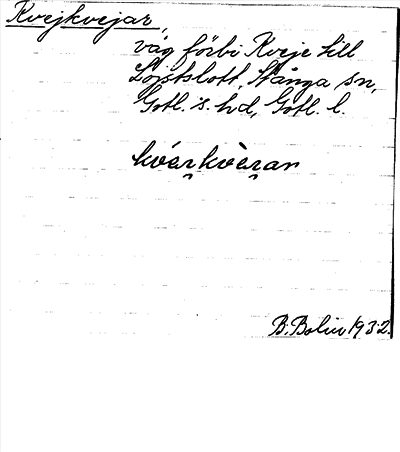 Kvejkvejar,
väg förbi Kveje till
Lojstslott, Stånga sn,
Gotl. s. hd, Gotl. l.
kvér̯kvèr̯ar
B. Bolin 1932.